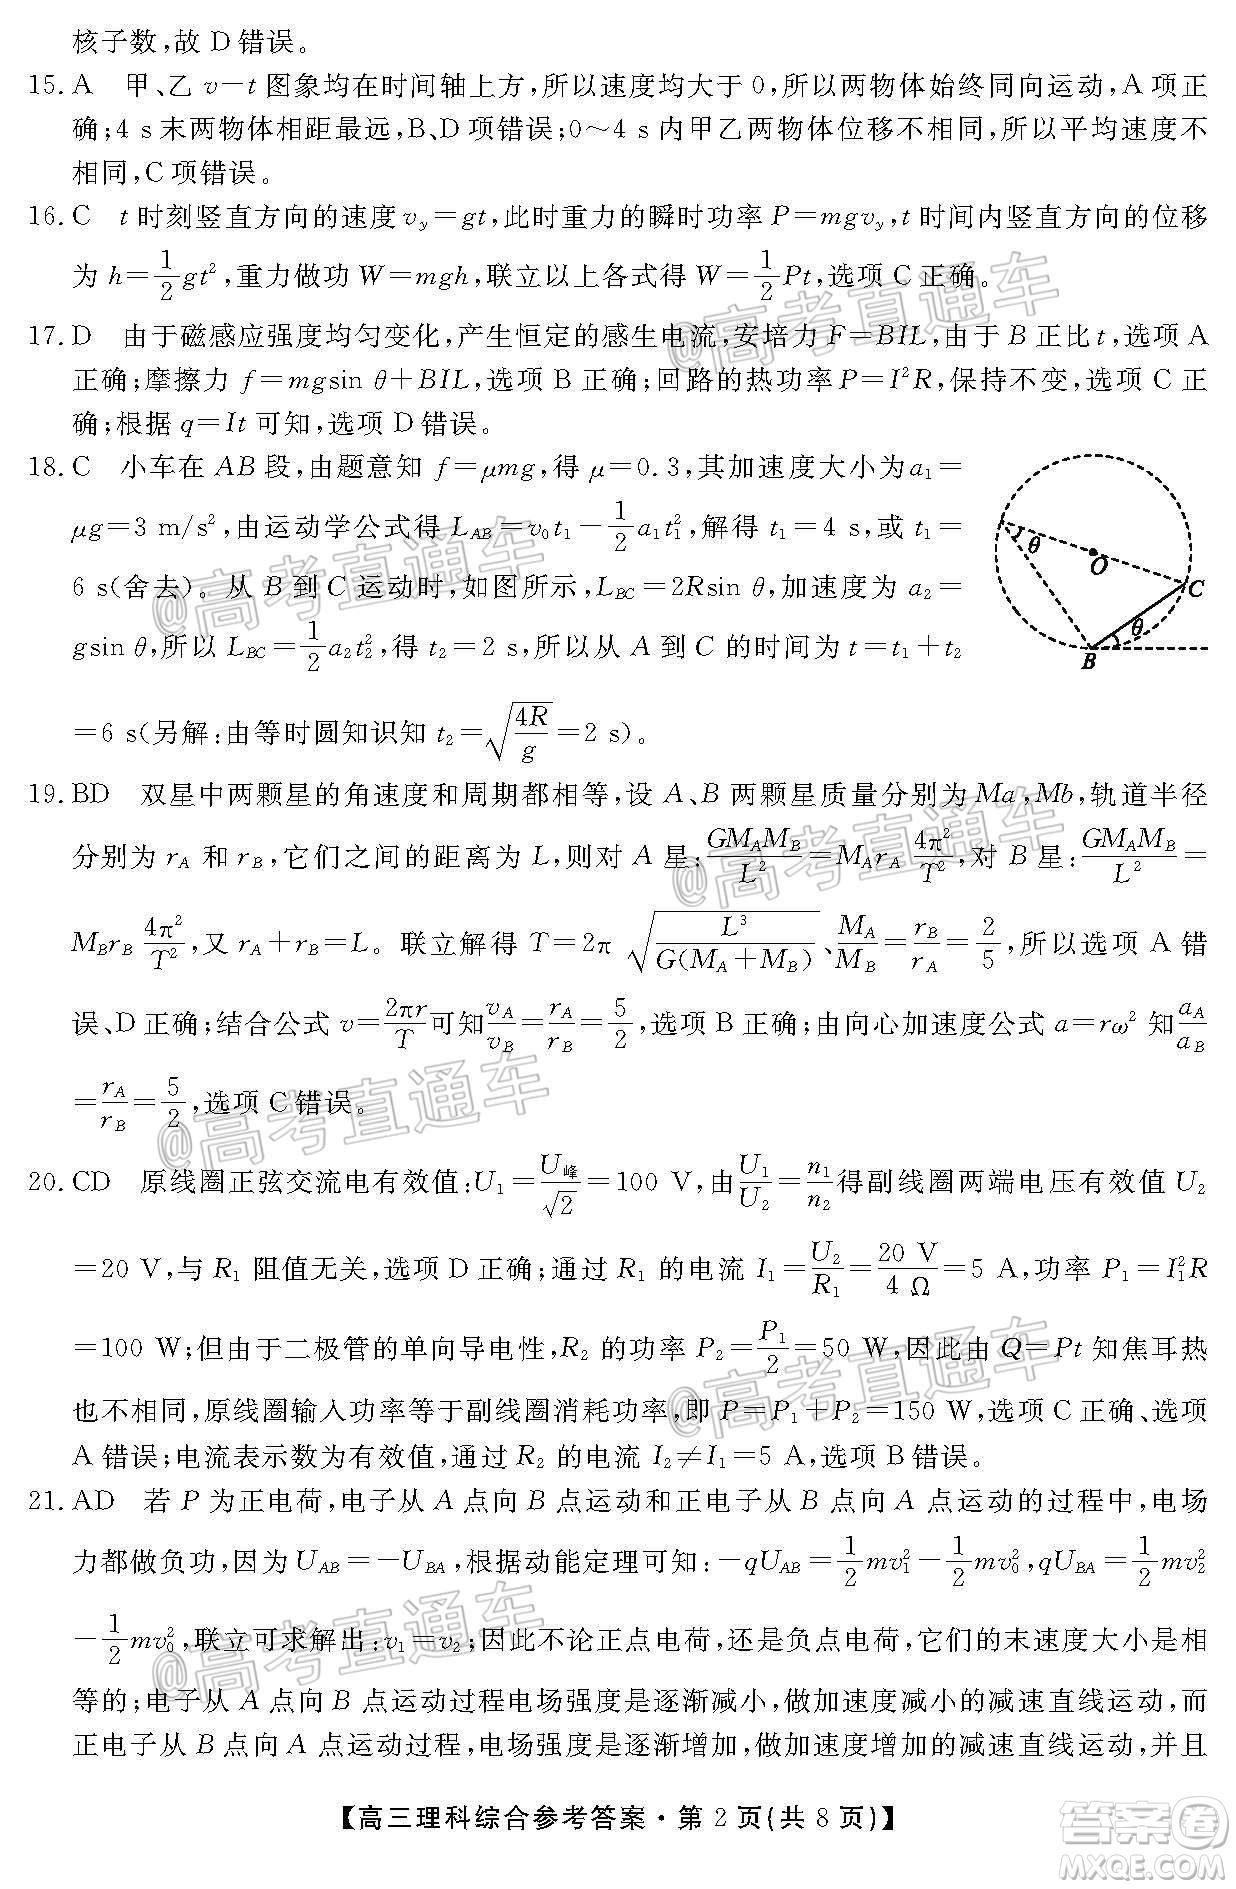 核子数,故 D 错误。
15. A 甲、乙 v－t 图象均在时间轴上方,所以速度均大于 0,所以两物体始终同向运动,A 项正
确;4 s 末两物体相距最远,B、D 项错误;0～4 s 内甲乙两物体位移不相同,所以平均速度不
相同,C 项错误。
16. C t 时刻竖直方向的速度 v_y=gt,此时重力的瞬时功率 P=mgv_y,t 时间内竖直方向的位移
为 h=\frac{1}{2}gt^2,重力做功 W=mgh,联立以上各式得 W=\frac{1}{2}Pt,选项 C 正确。
17. D 由于磁感应强度均匀变化,产生恒定的感生电流,安培力 F=BIL,由于 B 正比 t,选项 A
正确;摩擦力 f=mgsin θ+BIL,选项 B 正确;回路的热功率 P=I^2R,保持不变,选项 C 正
确;根据 q=It 可知,选项 D 错误。
18. C 小车在 AB 段,由题意知 f=μmg,得 μ=0.3,其加速度大小为 a_1=
μg=3 m/s^2,由运动学公式得 L_{AB}=v_0t_1-\frac{1}{2}a_1t_1^2,解得 t_1=4 s,或 t_1=
6 s(舍去)。从 B 到 C 运动时,如图所示,L_{BC}=2Rsin θ,加速度为 a_2=
gsin θ,所以 L_{BC}=\frac{1}{2}a_2t_2^2,得 t_2=2 s,所以从 A 到 C 的时间为 t=t_1+t_2
=6 s(另解:由等时圆知识知 t_2=\sqrt{\frac{4R}{g}}=2 s)。
θ
O
C
θ
B
19. BD 双星中两颗星的角速度和周期都相等,设 A、B 两颗星质量分别为 Ma,Mb,轨道半径
分别为 r_A 和 r_B,它们之间的距离为 L,则对 A 星:\frac{GM_AM_B}{L^2}=M_Ar_A\frac{4π^2}{T^2},对 B 星:\frac{GM_AM_B}{L^2}=
M_Br_B\frac{4π^2}{T^2},又 r_A+r_B=L。联立解得 T=2π\sqrt{\frac{L^3}{G(M_A+M_B)}}、\frac{M_A}{M_B}=\frac{r_B}{r_A}=\frac{2}{5},所以选项 A 错
误、D 正确;结合公式 v=\frac{2πr}{T}可知\frac{v_A}{v_B}=\frac{r_A}{r_B}=\frac{5}{2},选项 B 正确;由向心加速度公式 a=rω^2 知\frac{a_A}{a_B}
=\frac{r_A}{r_B}=\frac{5}{2},选项 C 错误。
20. CD 原线圈正弦交流电有效值:U_1=\frac{U_峰}{\sqrt{2}}=100 V,由\frac{U_1}{U_2}=\frac{n_1}{n_2}得副线圈两端电压有效值 U_2
=20 V,与 R_1 阻值无关,选项 D 正确;通过 R_1 的电流 I_1=\frac{U_2}{R_1}=\frac{20 V}{4 Ω}=5 A,功率 P_1=I_1^2R
=100 W;但由于二极管的单向导电性,R_2 的功率 P_2=\frac{P_1}{2}=50 W,因此由 Q=Pt 知焦耳热
也不相同,原线圈输入功率等于副线圈消耗功率,即 P=P_1+P_2=150 W,选项 C 正确、选项
A 错误;电流表示数为有效值,通过 R_2 的电流 I_2≠I_1=5 A,选项 B 错误。
21. AD 若 P 为正电荷,电子从 A 点向 B 点运动和正电子从 B 点向 A 点运动的过程中,电场
力都做负功,因为 U_{AB}=-U_{BA},根据动能定理可知:-qU_{AB}=\frac{1}{2}mv_1^2-\frac{1}{2}mv_0^2,qU_{BA}=\frac{1}{2}mv_2^2
-\frac{1}{2}mv_0^2,联立可求解出:v_1=v_2;因此不论正点电荷,还是负点电荷,它们的末速度大小是相
等的;电子从 A 点向 B 点运动过程电场强度是逐渐减小,做加速度减小的减速直线运动,而
正电子从 B 点向 A 点运动过程,电场强度是逐渐增加,做加速度增加的减速直线运动,并且
【高三理科综合参考答案·第 2 页(共 8 页)】
@高考直通车
@高考直通车
@高考直通车
@高考直通车
@高考直通车
@高考直通车
答案圈
MXQE.COM